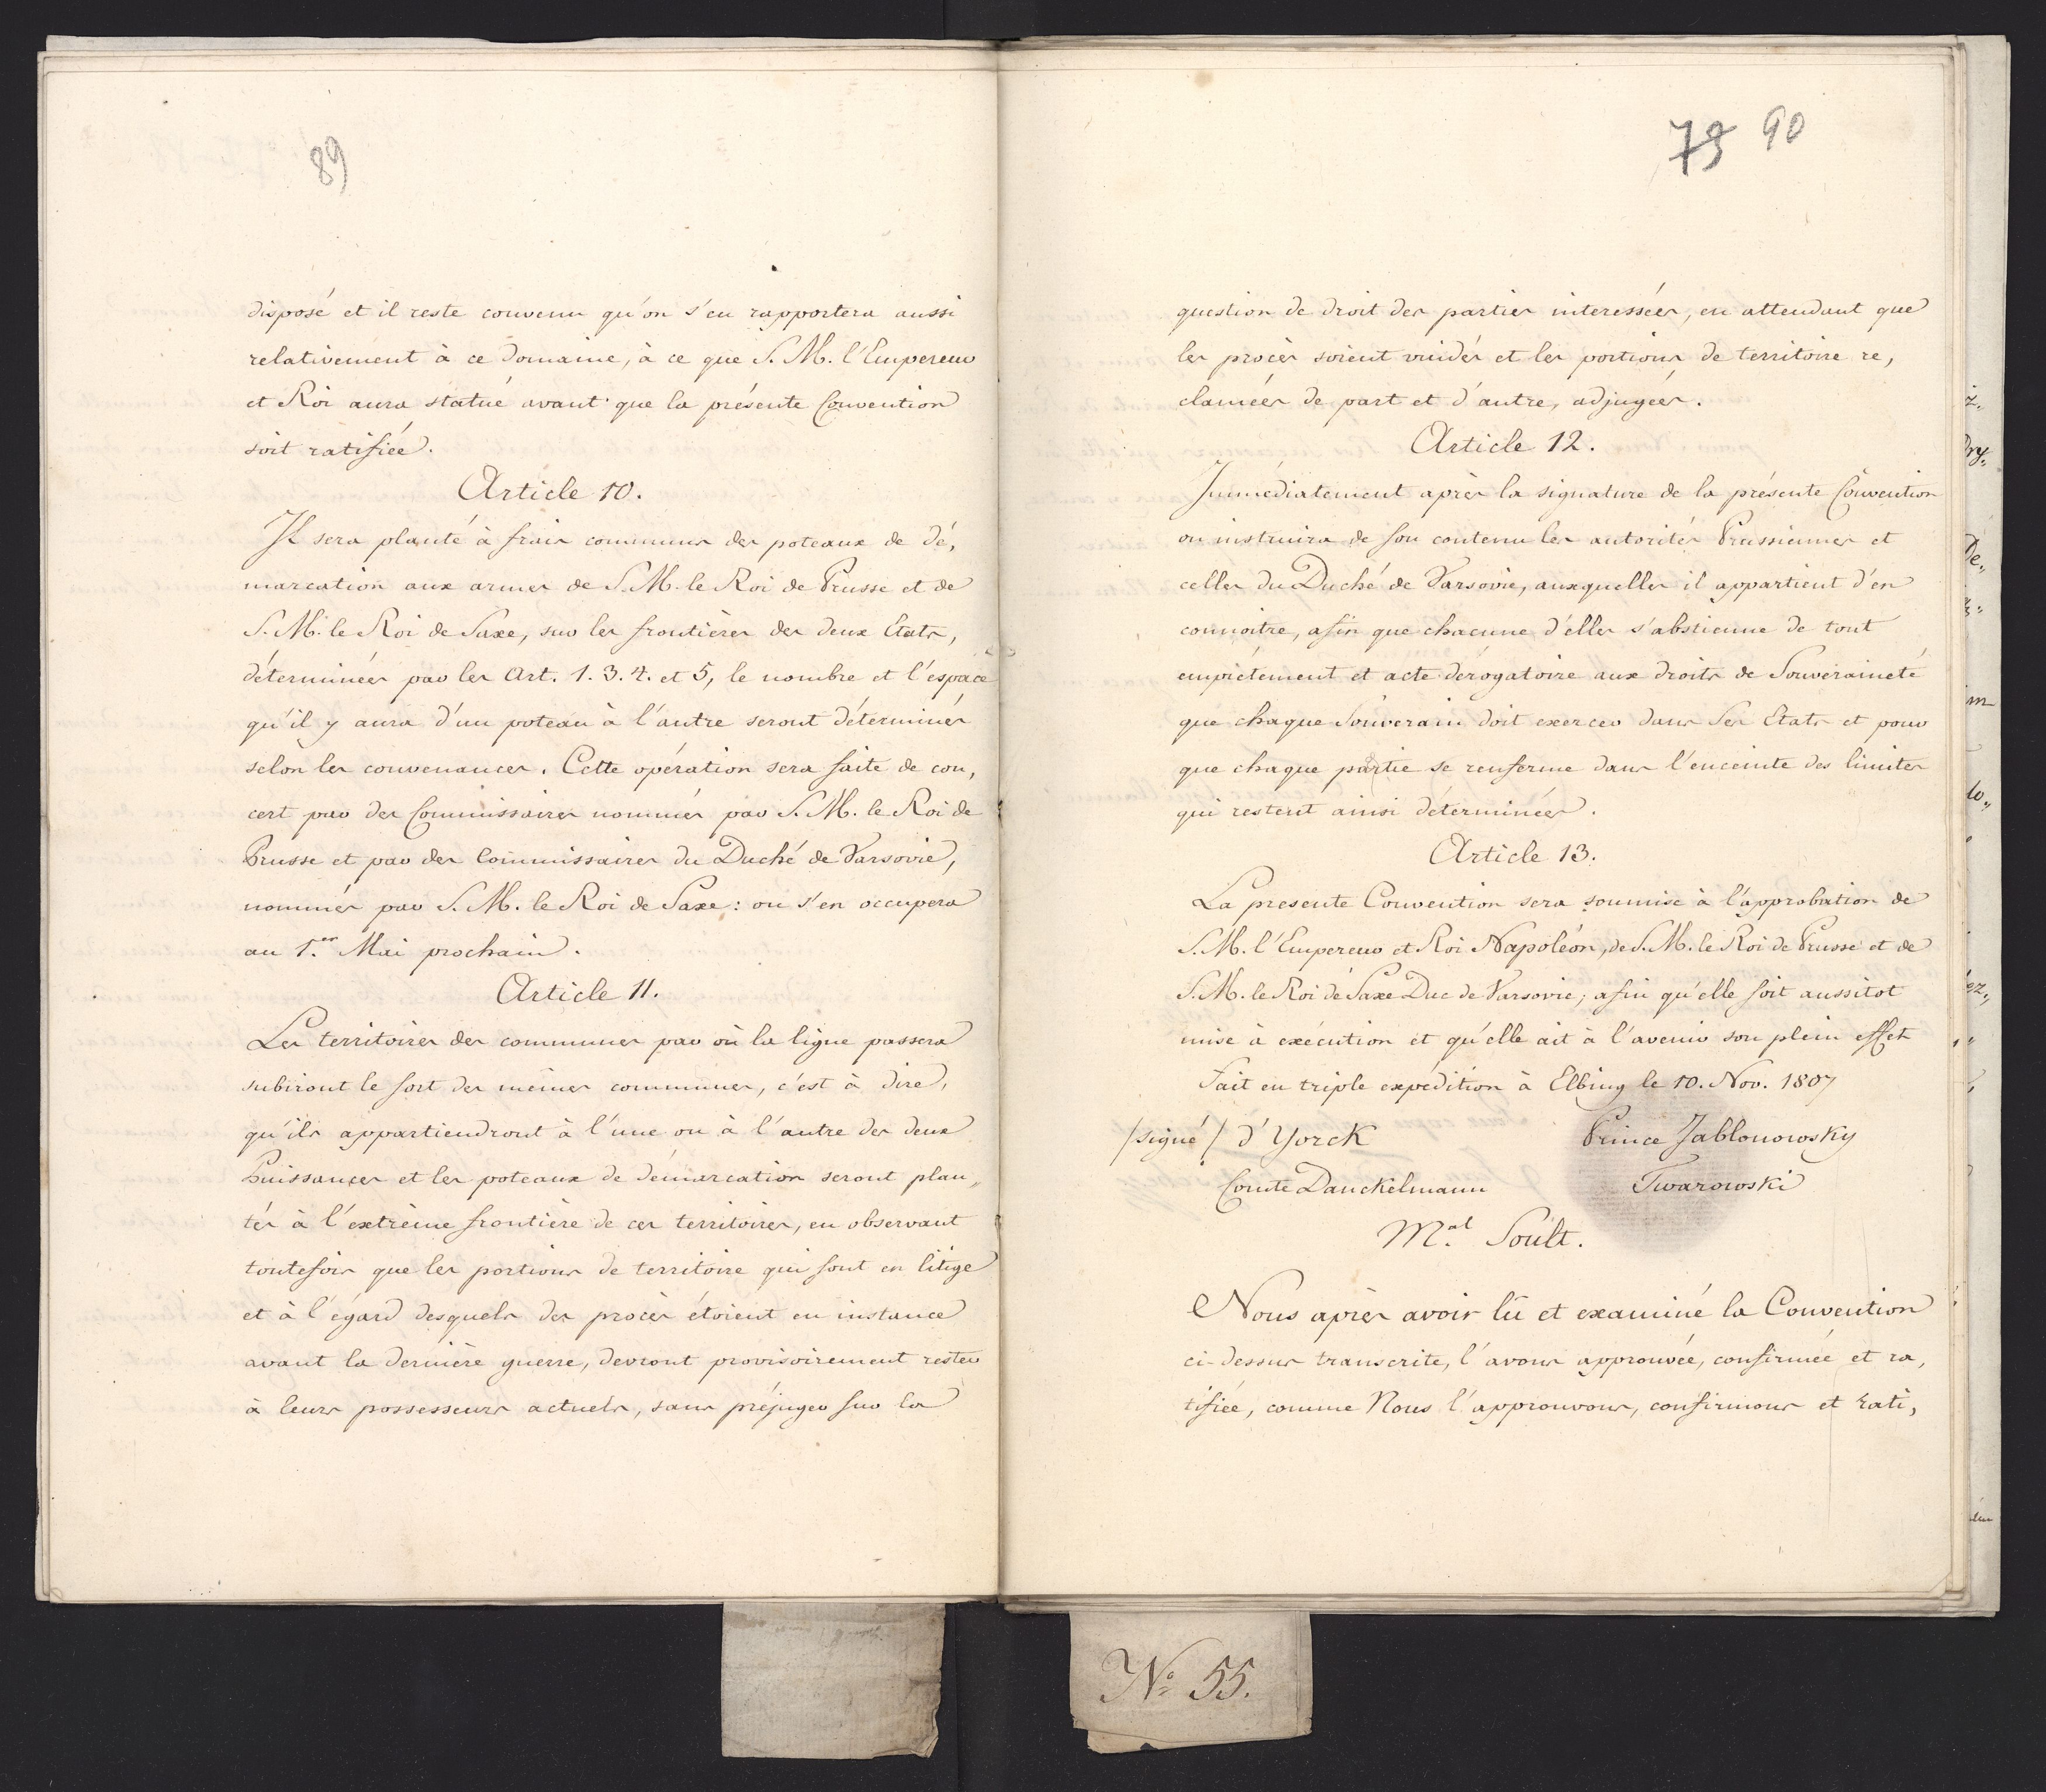 89
disposé et il reste convenu qu'on s'en rapportera aussi
relativement à ce Domaine, à ce que S. M. l'Empereur
et Roi aura statué avant que la présente Convention
soit ratifiée.
Article 10.
Il sera planté à frais communs des poteaux de dé,
marcation aux armes de S. M. le Roi de Prusse et de
S. M. le Roi de Saxe, sur les frontières des deux Etats,
déterminées par les Art. 1. 3. 4. et 5, le nombre et l'éspace
qu'il y aura d'un poteau à l'autre seront déterminés
selon les convenances. Cette opération sera faite de con,
cert par des Commissaires nommés par S. M. le Roi de
Prusse et par des Commissaires du Duché de Varsovie,
nommés par S. M. le Roi de Saxe: on s'en occupera
au 1.er Mai prochain.
Article 11.
Les territoires des communes par où la ligne passera
subiront le sort des mêmes communes, c'est à dire,
qu'ils appartiendront à l'une ou à l'autre des deux
Puissances et les poteaux de démarcation seront plan,
tés à l'extrême frontière de ces territoires, en observant
toutefois que les portions de territoire qui sont en litige
et à l'égard desquels des procès étoient en instance
avant la dernière guerre, devront provisoirement rester
à leurs possesseurs actuels, sans préjuger sur la
79 90
question de droit des parties interessées, en attendant que
les procès soient vuidés et les portions de territoire re,
clamées de part et d'autre, adjugées.
Article 12.
Immédiatement après la signature de la présente Convention
on instruira de son contenu les autorités Prussiennes et
celles du Duché de Varsovie, auxquelles il appartient d'en
connoitre, afin que chacune d'elles s'abstienne de tout
empiétement et acte dérogatoire aux droits de Souveraineté
que chaque Souverain doit exercer dans Ses Etats et pour
que chaque partie se renferme dans l'enceinte des limites
qui restent ainsi déterminées.
Article 13.
La presente Convention sera soumise à l'approbation de
S. M. l'Empereur et Roi Napoléon, de S. M. le Roi de Prusse et de
S. M. le Roi de Saxe Duc de Varsovie; afin qu'elle soit aussitot
mise à exécution et qu'elle ait à l'avenir son plein effet
Fait en triple expédition à Elbing le 10. Nov. 1807
/signé/ d'Yorck Prince Jablonowsky
Comte Danckelmann Twarowski
M.al Soult.
Nous après avoir lû et examiné la Convention
ci-dessus transcrite, l'avons approuvée, confirmée et ra,
tifiée, comme Nous l'approuvons, confirmons et rati,
No 55.